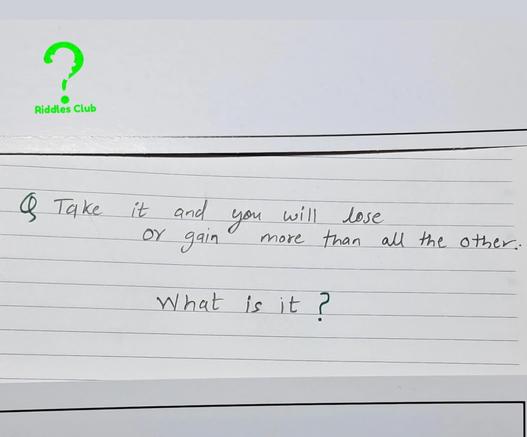 ?
Riddles Club
Q Take it and you will lose
or gain more than all the other.
What is it ?